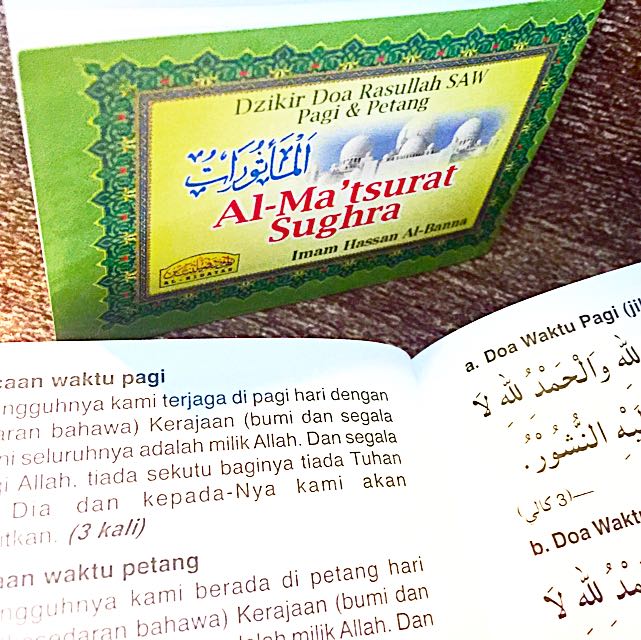 Dzikir Doa Rasullah SAW
Pagi & Petang
اَلْمَأْثُورَاتُ
Al-Ma'tsurat
Sughra
Imam Hassan Al-Banna
AL-HIDAYAH
caan waktu pagi
ngguhnya kami terjaga di pagi hari dengan
aran bahawa) Kerajaan (bumi dan segala
ni seluruhnya adalah milik Allah. Dan segala
gi Allah. tiada sekutu baginya tiada Tuhan
Dia dan kepada-Nya kami akan
itkan. (3 kali)
aan waktu petang
ngguhnya kami berada di petang hari
kesedaran bahawa) Kerajaan (bumi dan
adalah milik Allah. Dan
a. Doa Waktu Pagi (jik
لِلّٰهِ وَالْحَمْدُ لِلّٰهِ لَا
النُّشُوْرُ.
(3 كالي)
b. Doa Waktu
لِلّٰهِ لَا